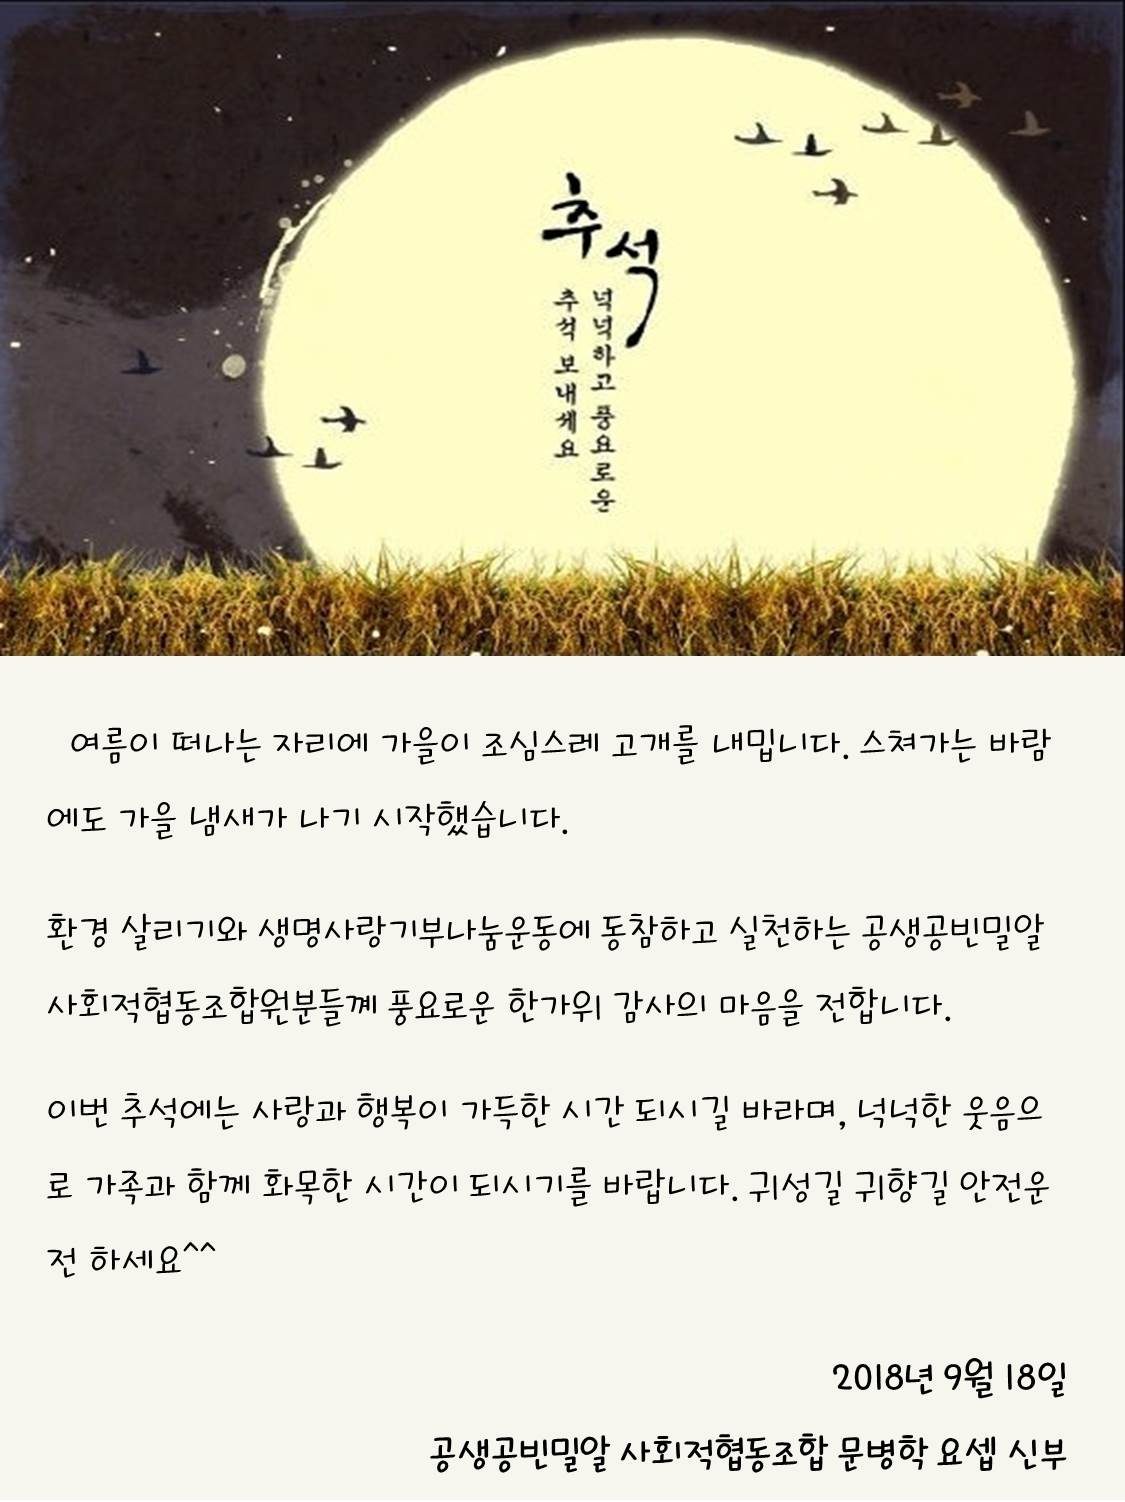 추석
넉넉하고 풍요로운
추석 보내세요
여름이 떠나는 자리에 가을이 조심스레 고개를 내밉니다. 스쳐가는 바람
에도 가을 냄새가 나기 시작했습니다.
환경 살리기와 생명사랑기부나눔운동에 동참하고 실천하는 공생공빈밀알
사회적협동조합원분들꼐 풍요로운 한가위 감사의 마음을 전합니다.
이번 추석에는 사랑과 행복이 가득한 시간 되시길 바라며, 넉넉한 웃음으
로 가족과 함께 화목한 시간이 되시기를 바랍니다. 귀성길 귀향길 안전운
전 하세요^^
2018년 9월 18일
공생공빈밀알 사회적협동조합 문병학 요셉 신부